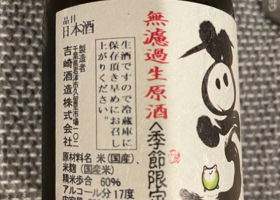 無濾過生原酒
<季節限定
品目
日本酒
生酒ですので冷蔵庫に
保存頂き早めにお召し
上がりください。
製造者
千葉県君津市久留里市場一〇二
吉崎酒造株式会社
原材料名 米(国産)、
米麹(国産米)
精米歩合 60%
アルコール分 17度